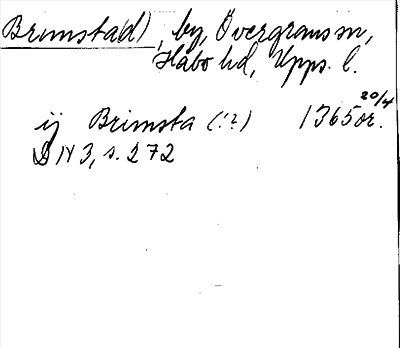 Brumstad), by, Övergrans sn,
Håbo hd, Upps. l.
20/4
ij Brimsta (!?) 1365 or.
D N 3, s. 272